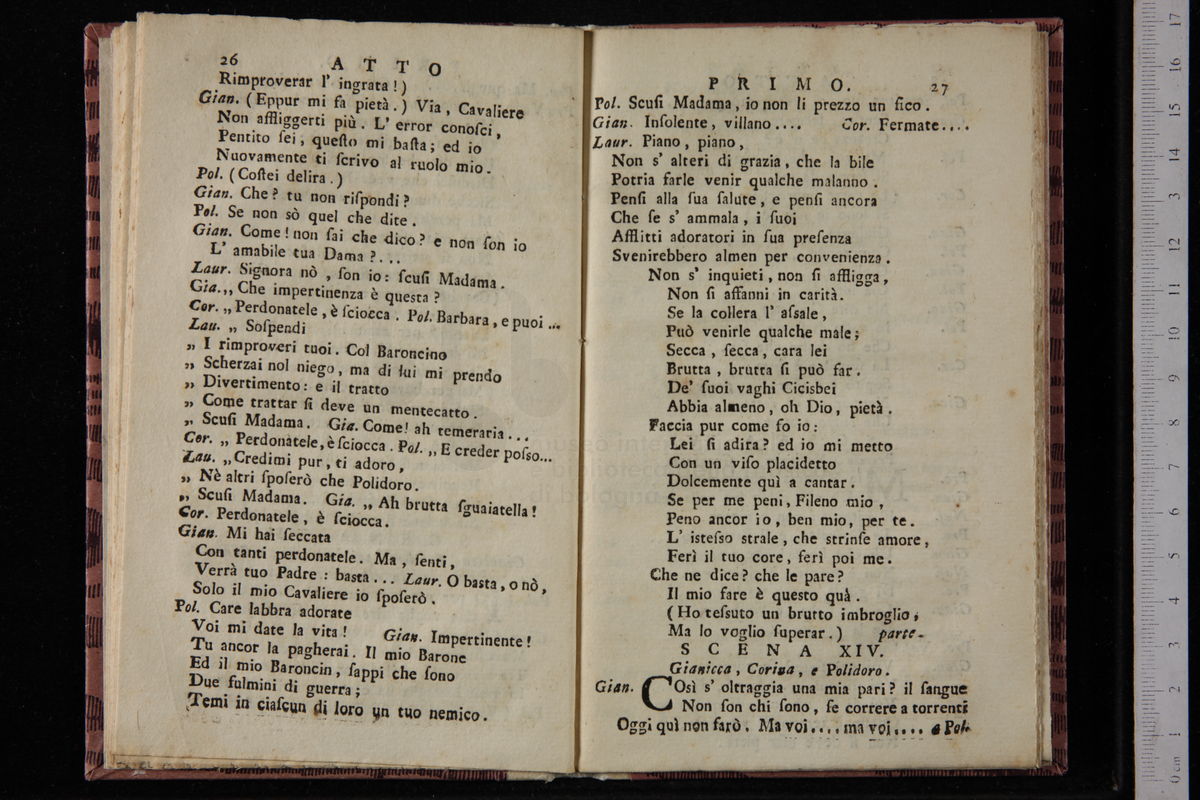 26
A T T O
Rimproverar l' ingrata!)
Gian. (Eppur mi fa pietà.) Via, Cavaliere
Non affliggerti più. L' error conoſci,
Pentito ſei, queſto mi baſta; ed io
Nuovamente ti ſcrivo al ruolo mio.
Pol. (Coſtei delira.)
Gian. Che? tu non riſpondi?
Pol. Se non sò quel che dite.
Gian. Come! non ſai che dico? e non ſon io
L' amabile tua Dama?...
Laur. Signora nò, ſon io: ſcuſi Madama.
Gia.,, Che impertinenza è questa?
Cor. „ Perdonatele, è ſciocca. Pol. Barbara, e puoi ...
Lau. „ Soſpendi
„ I rimproveri tuoi. Col Baroncino
„ Scherzai nol niego, ma di lui mi prendo
„ Divertimento: e il tratto
„ Come trattar ſi deve un mentecatto.
„ Scuſi Madama. Gia. Come! ah temeraria...
Cor. „ Perdonatele, è ſciocca. Pol. „ E creder poſso...
Lau. „ Credimi pur, ti adoro,
„ Nè altri ſpoſerò che Polidoro.
„ Scuſi Madama. Gia. „ Ah brutta ſguaiatella!
Cor. Perdonatele, è ſciocca.
Gian. Mi hai ſeccata
Con tanti perdonatele. Ma, ſenti,
Verrà tuo Padre: basta... Laur. O basta, o nò,
Solo il mio Cavaliere io ſpoſerò.
Pol. Care labbra adorate
Voi mi date la vita! Gian. Impertinente!
Tu ancor la pagherai. Il mio Barone
Ed il mio Baroncin, ſappi che ſono
Due fulmini di guerra;
Temi in ciaſcun di loro un tuo nemico.
P R I M O. 27
Pol. Scuſi Madama, io non li prezzo un fico.
Gian. Inſolente, villano.... Cor. Fermate....
Laur. Piano, piano,
Non s' alteri di grazia, che la bile
Potria farle venir qualche malanno.
Penſi alla ſua ſalute, e penſi ancora
Che ſe s' ammala, i ſuoi
Afflitti adoratori in ſua preſenza
Svenirebbero almen per convenienza.
Non s' inquieti, non ſi affligga,
Non ſi affanni in carità.
Se la collera l' aſsale,
Può venirle qualche male;
Secca, ſecca, cara lei
Brutta, brutta ſi può far.
De' ſuoi vaghi Cicisbei
Abbia almeno, oh Dio, pietà.
Faccia pur come fo io:
Lei ſi adira? ed io mi metto
Con un viſo placidetto
Dolcemente quì a cantar.
Se per me peni, Fileno mio,
Peno ancor io, ben mio, per te.
L' isteſso strale, che strinſe amore,
Ferì il tuo core, ferì poi me.
Che ne dice? che le pare?
Il mio fare è questo quà.
(Ho teſsuto un brutto imbroglio,
Ma lo voglio ſuperar.) parte.
S C E N A XIV.
Gianicca, Corina, e Polidoro.
Gian. COsì s' oltraggia una mia pari? il ſangue
Non ſon chi ſono, ſe correre a torrenti
Oggi quì non farò. Ma voi.... ma voi.... a Pol.